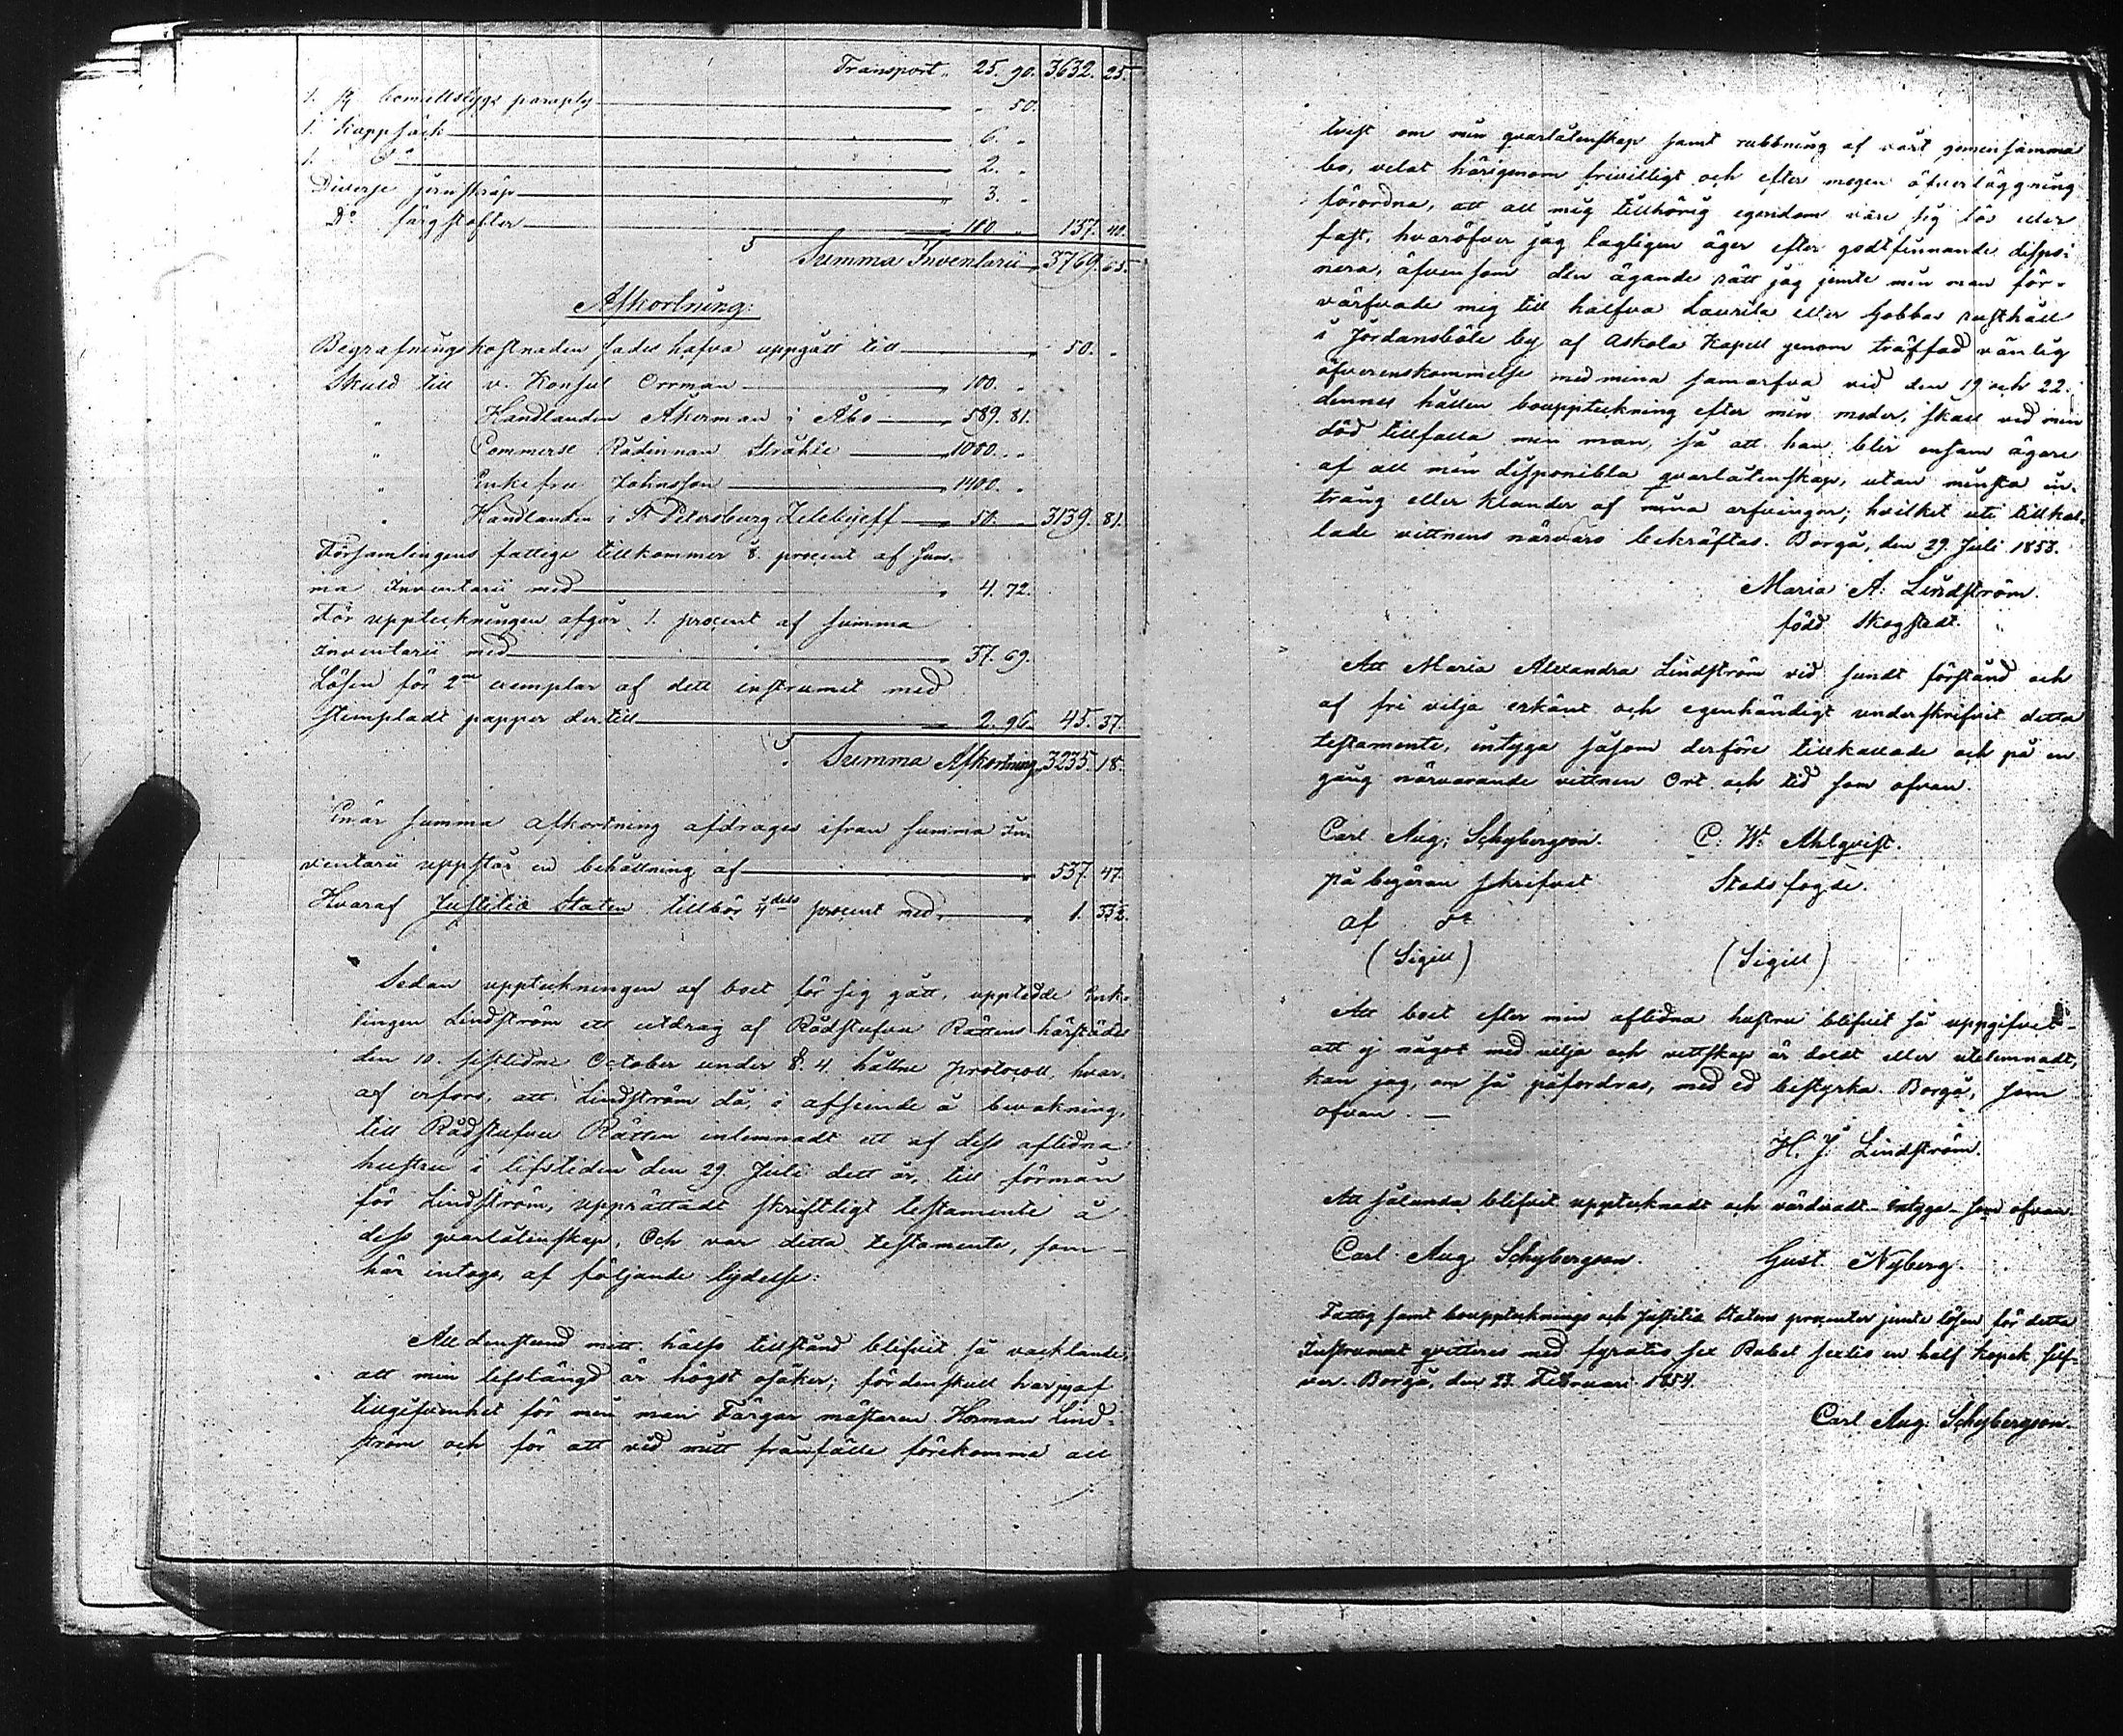 Transport " 25. 90. 3632. 25.
1. st bomullstygs paraply " 50.
1. Kappsäck 6. "
1. Do 2. "
Diverse jernskrap " 3. "
Do färgstofter 100 " 137. 40.
Summa Inventarii 3769. 65.
Afkortning:
Begrafningskostnaden sades hafva uppgått till " 50. "
Skuld till v. Konsul Orrman 100. "
" Handlanden Åkerman i Åbo 589. 81.
" Commerse Rådinnan Stråhle 1000. "
" Enkefru Johnsson 1400. "
" Handlanden i St Petersburg 50. " 3139. 81.
Församlingens fattige tillkommer 8 procent af sum-
ma Inventarii med 4. 72.
För uppteckningen afgår 1. procent af summa
Inventarii med 37. 69.
Lösen för 2ne exemplar af dett instrumet med
stempladt papper dertill 2. 96. 45. 37.
Summa Afkortning 3235. 18.
Enär summa afkortning afdrages ifrån summa In-
ventarii uppstår en behållning af 537. 47.
Hvaraf Justitiæ Staten tillbör 1/4dels procent med 1. 33½.
Sedan uppteckningen af boet för sig gått, uppledde Enk-
lingen Lindström ett utdrag af Rådstufvu Rättens härstädes
den 10. sistlidne October under §. 4. hållne protocoll, hvar-
af erfors, att Lindström då, i afseende å bevakning,
till Rådstufvu Rätten inlemnadt ett af dess aflidna
hustru i lifstiden den 29 Juli dett år, till förmån
för Lindström, upprättadt skriftligt testamente å
dess qvarlåtenskap. Och var detta testamente, som
här intages, af följande lydelse:
Alldenstund mitt hälso tillstånd blifvit så vacklande,
att min lifslängd är högst osäker; fördenskull har jag af
tillgifvenhet för min man Färgar mästaren Herman Lind-
ström och för att vid mitt frånfälle förekomma all
tvist om min qvarlåtenskap samt rubbning af vårt gemensamma
bo, velat härigenom frivilligt och efter mogen öfverläggning
förordna, att all mig tillhörig egendom vare sig lös eller
fast, hvaröfver jag lagligen äger efter godtfinnande dispo-
nera, äfvensom den ägande rätt jag jemte min man för-
värfvade mig till halfva Laurila eller Gobbas rusthåll
i Jordansböle by af Askola Kapell genom träffad vänlig
öfverenskommelse med mina samarfva vid den 19 och 22.
dennes hållen bouppteckning efter min moder, skall vid min
död tillfalla min man, så att han blir ensam ägare
af all min disponibla qvarlåtenskap, utan minsta in-
trång eller klander af mina arfvingar; hvilket uti tillkal-
lade vittnens närvaro bekräftas. Borgå, den 29. Juli 1853.
Maria A. Lindström.
född Skogstedt.
Att Maria Alexandra Lindström vid sundt förstånd och
af fri vilja erkänt och egenhändigt underskrifvit detta
testamente, intyga såsom derföre tillkallade och på en
gång närvarande vittnen Ort och tid som ofvan.
Carl Aug: Schybergson. C: W: Ahlqvist.
på begäran skrifvit Stads fogde.
af
(Sigill) (Sigill)
Att boet efter min aflidna hustru blifvit så uppgifvet
att ej något med vilja och vettskap är doldt eller utelemnadt,
kan jag, om så påfordras, med ed bestyrka. Borgå, som
ofvan. —
H. J: Lindström.
Att sålunda blifvit upptecknadt och värderadt intyga som ofvan.
Carl Aug Schybergson. Gust. Nyberg.
Fattig samt bouppteknings och Justitiæ Statens procenter jemte lösen för detta
Instrument qvitteras med fyratio sex Rubel sextio en half kopek silf-
ver. Borgå, den 23. Februari 1854.
Carl Aug: Schybergson.